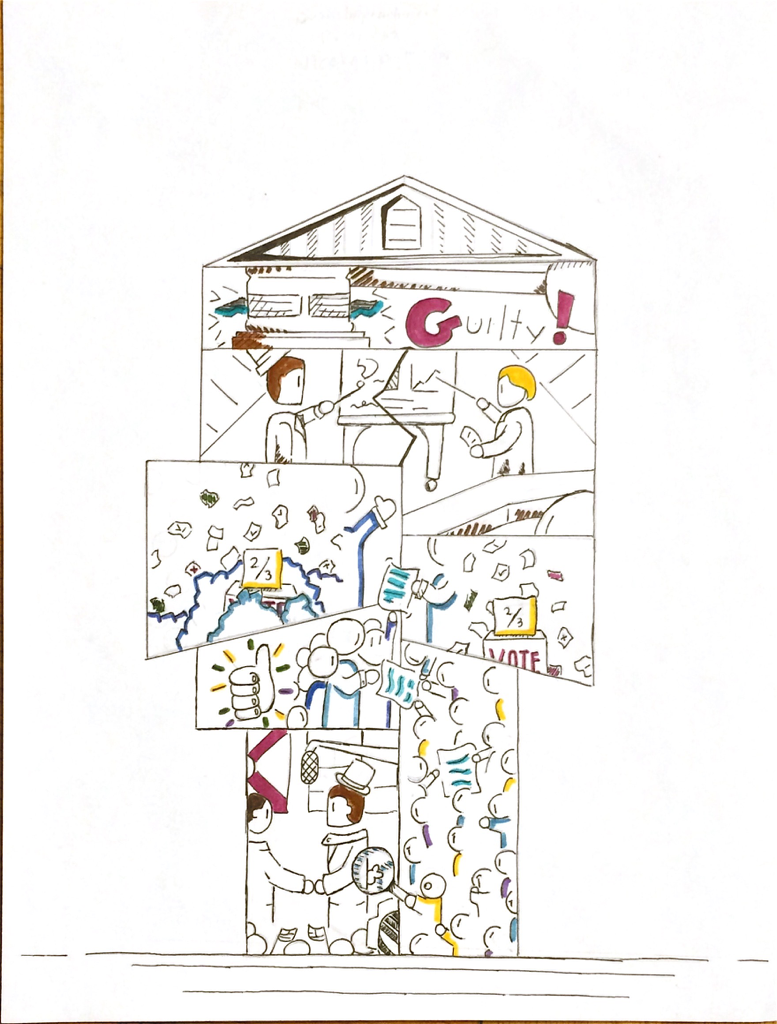 Guilty!
2/3
2/3
VOTE